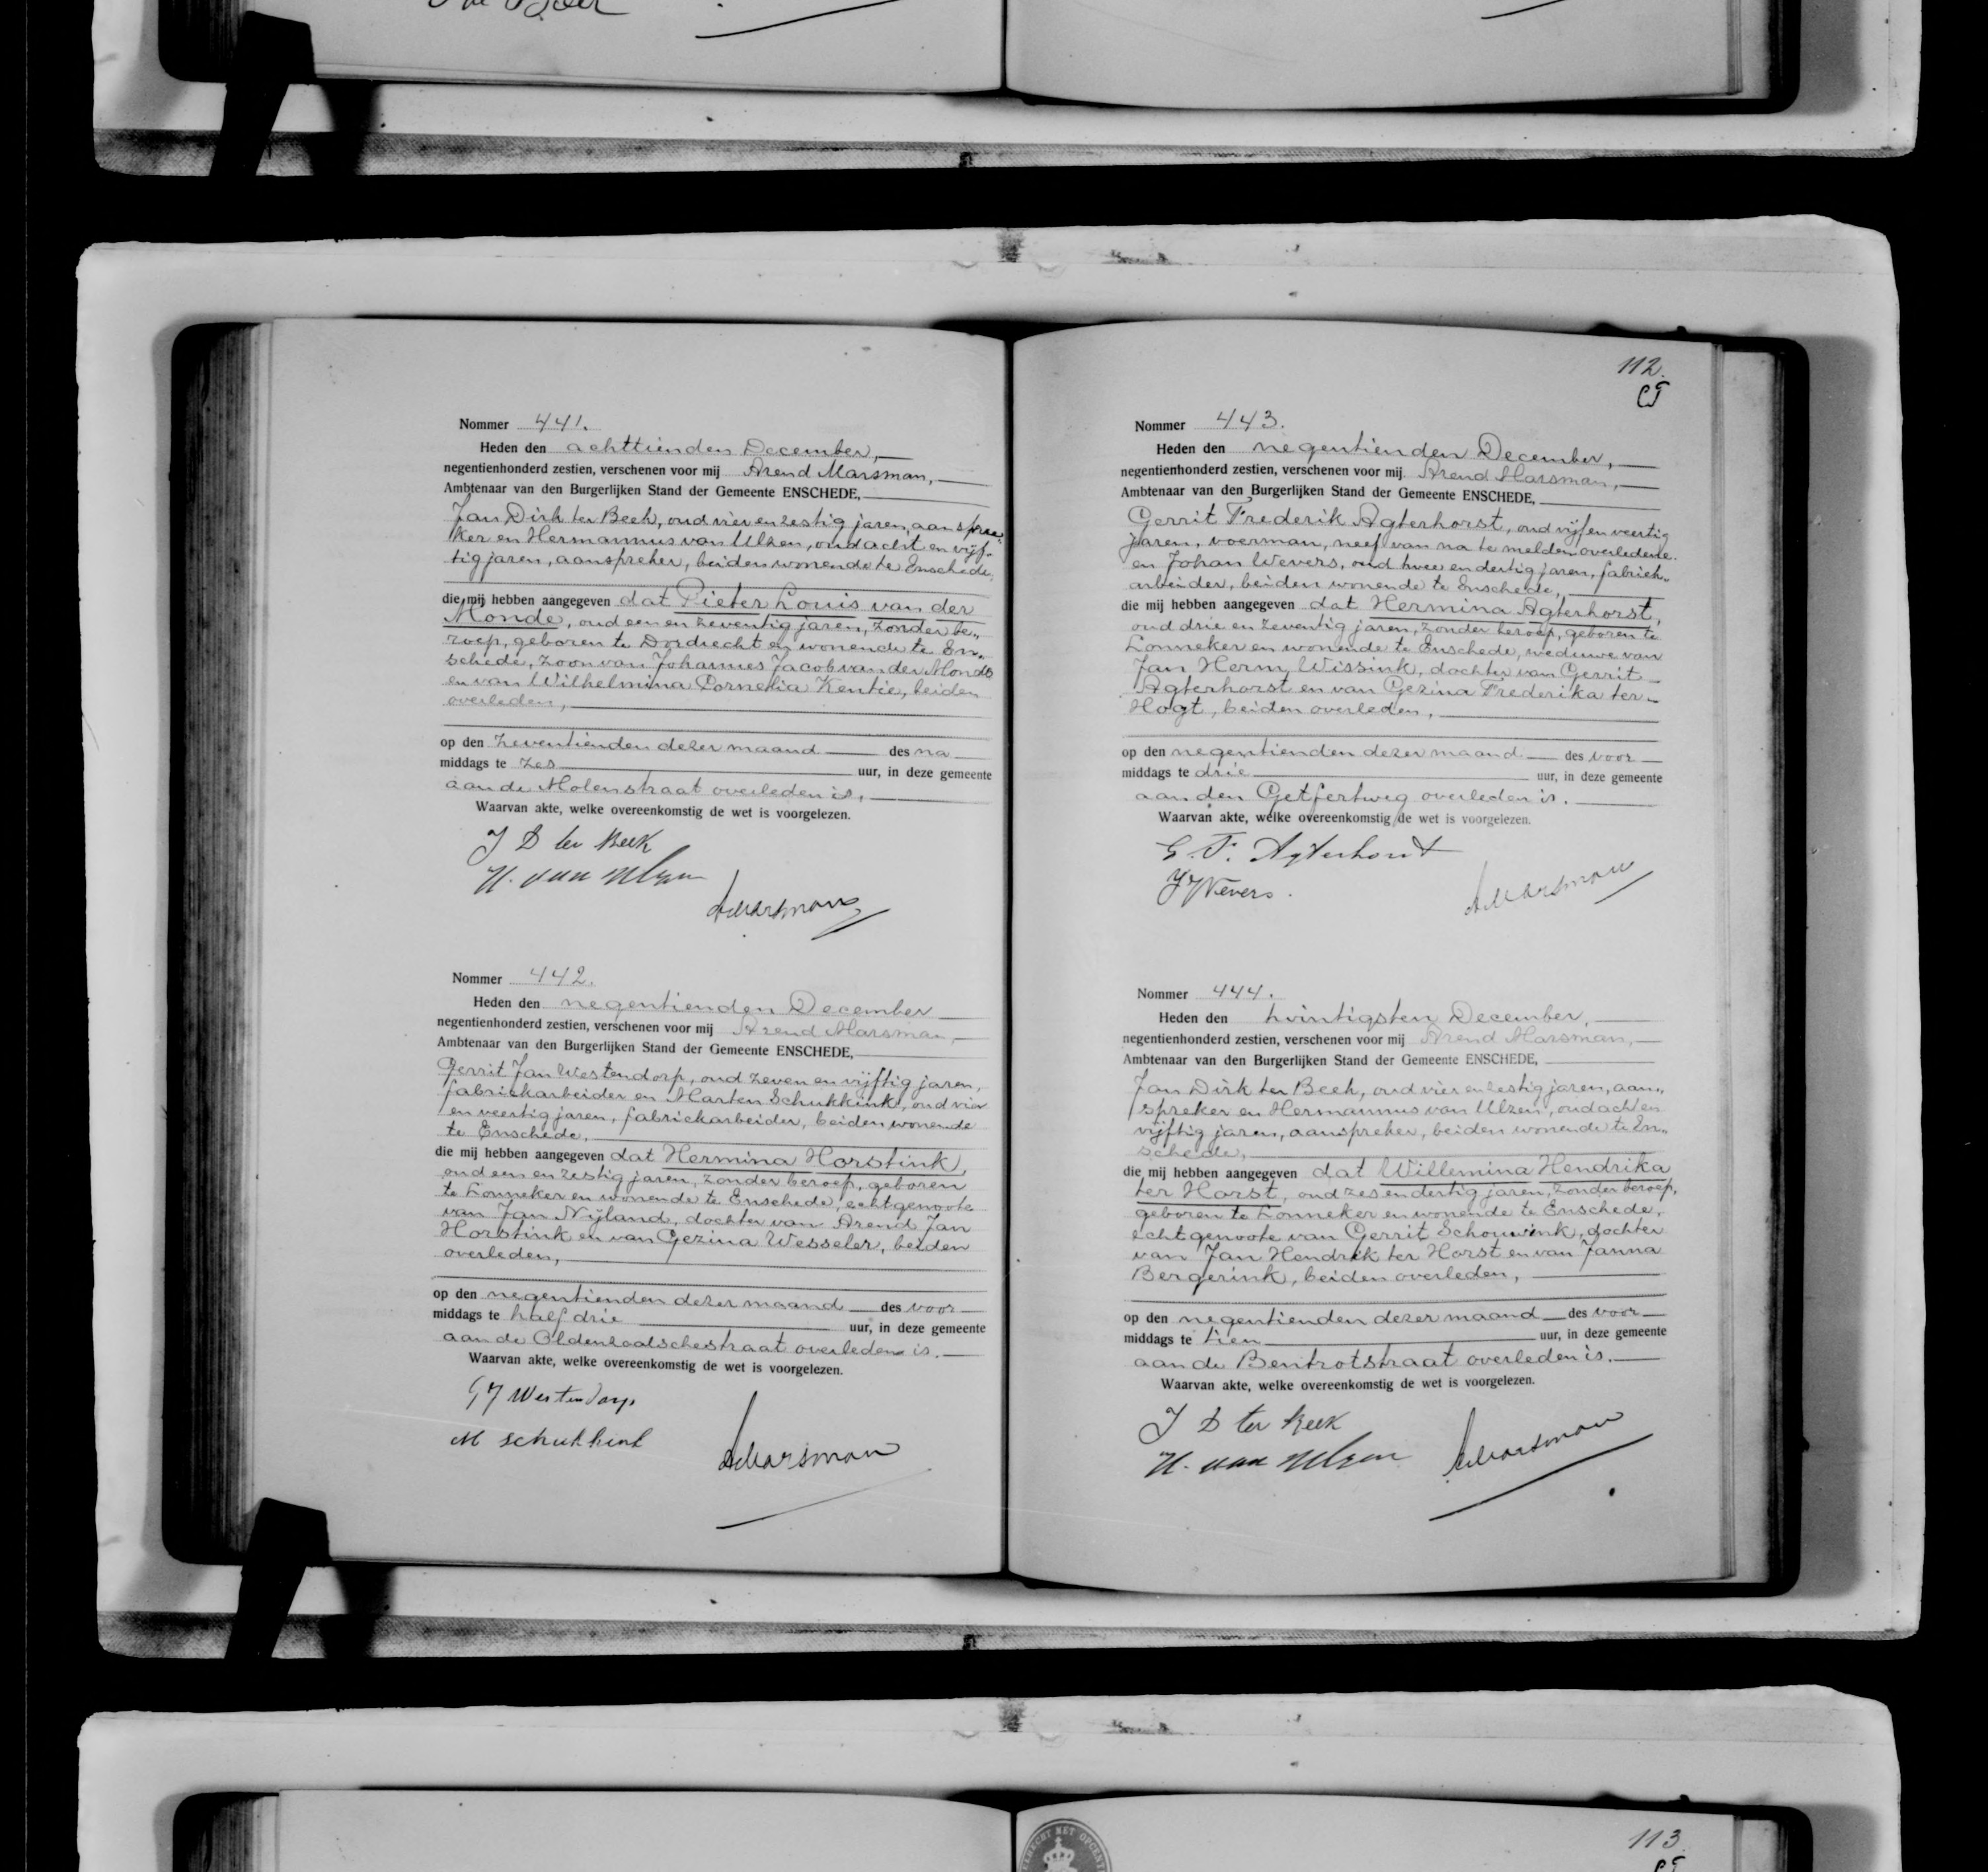 Nommer 441.
Heden den achttienden December,
negentienhonderd zestien, verschenen voor mij Arend Marsman,
Ambtenaar van den Burgerlijken Stand der Gemeente ENSCHEDE,
Jan Dirk ter Beek, oud vier en zestig jaren, aanspree-
ker en Hermannus van Ulzen, oud acht en vijf-
tig jaren, aanspreker, beiden wonende te Enschede,
die mij hebben aangegeven dat Pieter Louis van der
Monde, oud een en zeventig jaren, zonder be-
roep, geboren te Dordrecht en wonende te En-
schede, zoon van Johannes Jacob van der Monde
en van Wilhelmina Cornelia Kentie, beiden
overleden,
op den zeventienden dezer maand des na
middags te zes uur, in deze gemeente
aan de Molenstraat overleden is.
Waarvan akte, welke overeenkomstig de wet is voorgelezen.
J D ter Beek
H. van Ulzen
AMarsman
Nommer 442.
Heden den negentienden December
negentienhonderd zestien, verschenen voor mij Arend Marsman,
Ambtenaar van den Burgerlijken Stand der Gemeente ENSCHEDE,
Gerrit Jan Westendorp, oud zeven en vijftig jaren,
fabriekarbeider en Marten Schukkink, oud vier
en veertig jaren, fabriekarbeider, beiden wonende
te Enschede,
die mij hebben aangegeven dat Hermina Horstink,
oud een en zestig jaren, zonder beroep, geboren
te Lonneker en wonende te Enschede, echtgenoote
van Jan Nijland, dochter van Arend Jan
Horstink en van Gezina Wesseler, beiden
overleden,
op den negentienden dezer maand des voor
middags te half drie uur, in deze gemeente
aan de Oldenzaalschestraat overleden is.
Waarvan akte, welke overeenkomstig de wet is voorgelezen.
GJ Westendorp
M Schukkink
AMarsman
112.
Nommer 443.
Heden den negentienden December,
negentienhonderd zestien, verschenen voor mij Arend Marsman,
Ambtenaar van den Burgerlijken Stand der Gemeente ENSCHEDE,
Gerrit Frederik Agterhorst, oud vijf en veertig
jaren, voerman, neef van na te melden overledene.
en Johan Wevers, oud twee en dertig jaren, fabriek-
arbeider, beiden wonende te Enschede,
die mij hebben aangegeven dat Hermina Agterhorst,
oud drie en zeventig jaren, zonder beroep, geboren te
Lonneker en wonende te Enschede, weduwe van
Jan Herm Wissink, dochter van Gerrit
Agterhorst en van Gezina Frederika ter
Hogt, beiden overleden,
op den negentienden dezer maand des voor
middags te drie uur, in deze gemeente
aan den Getfertweg overleden is.
Waarvan akte, welke overeenkomstig de wet is voorgelezen.
G. F. Agterhorst
J Wevers.
AMarsman
Nommer 444.
Heden den twintigsten December,
negentienhonderd zestien, verschenen voor mij Arend Marsman,
Ambtenaar van den Burgerlijken Stand der Gemeente ENSCHEDE,
Jan Dirk ter Beek, oud vier en zestig jaren, aan-
spreker en Hermannus van Ulzen, oud acht en
vijftig jaren, aanspreker, beiden wonende te En-
schede,
die mij hebben aangegeven dat Willemina Hendrika
ter Horst, oud zes en dertig jaren, zonder beroep,
geboren te Lonneker en wonende te Enschede,
echtgenoote van Gerrit Schouwink, dochter
van Jan Hendrik ter Horst en van Janna
Bergerink, beiden overleden,
op den negentienden dezer maand des voor
middags te tien uur, in deze gemeente
aan de Bentrotstraat overleden is.
Waarvan akte, welke overeenkomstig de wet is voorgelezen.
J D ter Beek
H. van Ulzen
AMarsman
113